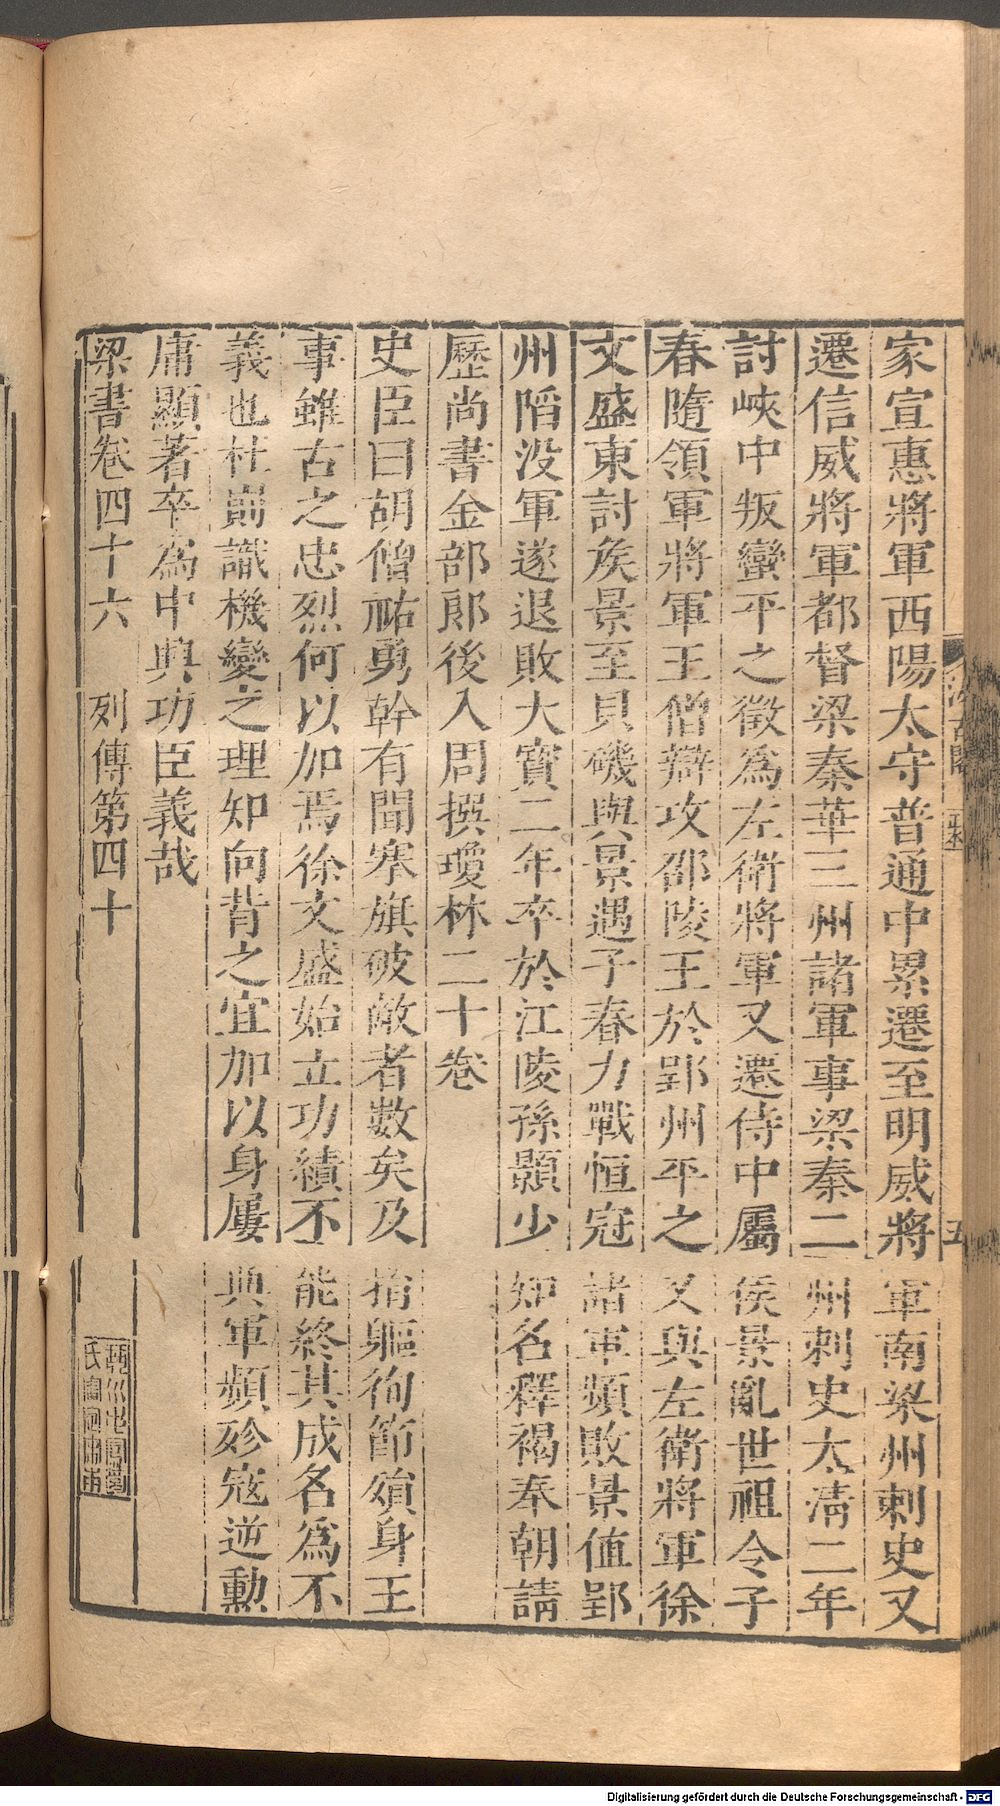 家宣惠將軍西陽太守普通中累遷至明威將軍南梁州刺史又
遷信威將軍都督梁秦華三州諸軍事梁秦二州刺史太清二年
討峽中叛蠻平之徵爲左衛將軍又遷侍中屬侯景亂世祖令子
春隨領軍將軍王僧辯攻邵陵王於郢州平之又與左衛將軍徐
文盛東討矦景至貝磯與景遇子春力戰恒冠諸軍頻敗景值郢
州陷没軍遂退敗大寶二年卒於江陵孫顥少知名釋褐奉朝請
歷尚書金部郞後入周撰瓊林二十卷
史臣曰胡僧祐勇幹有聞搴旗破敵者數矣及捐軀徇節殞身王
事雖古之忠烈何以加焉徐文盛始立功績不能終其成名爲不
義也杜崱識機變之理知向背之宜加以身屢典軍頻殄寇逆勳
庸顯著卒爲中興功臣義哉
梁書卷四十六 列傳第四十
汲古閣
五
Digitalisierung gefördert durch die Deutsche Forschungsgemeinschaft - DFG